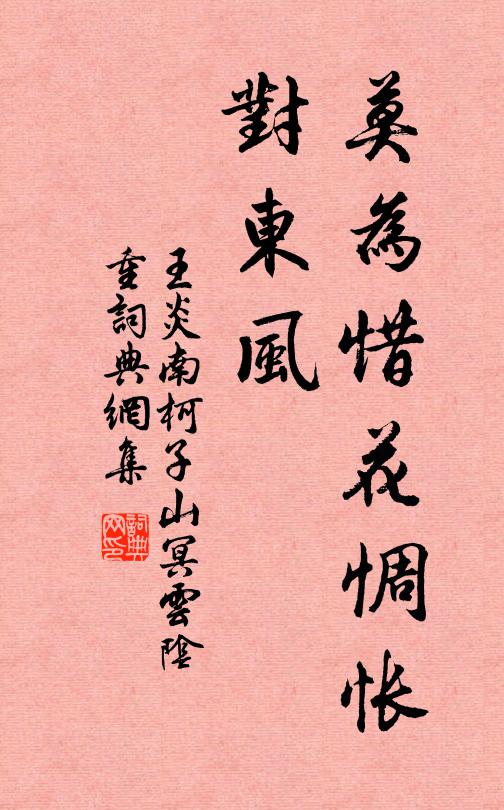 莫為惜花惆悵
對東風
王炎南柯子山冥雲陰
重詞典網集
詞典
网印